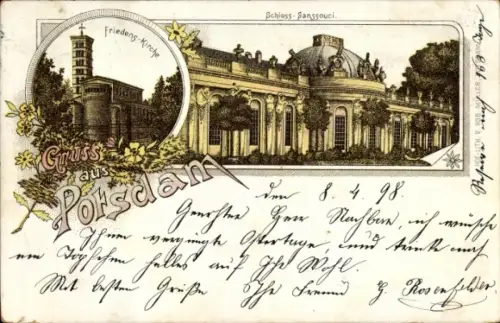 Friedens-Kirche
Schloss-Sanssouci.
Gruss
aus
Potsdam
den 8. 4. 98.
Geerhter Herr Nachbar, ich wünsche
Ihnen vergnügte Ostertage, und trinke noch
ein Töpfchen helles auf Ihr Wohl.
Mit besten Grüße Ihr Freund H. Rosenfelder